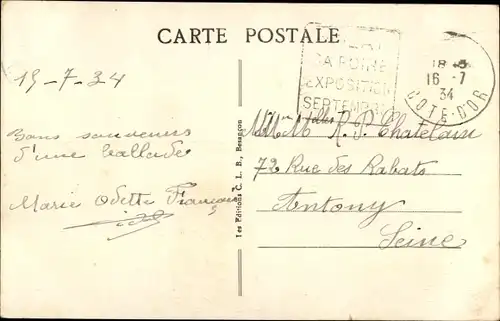 CARTE POSTALE
15-7-34
Bons souvenirs
d'une ballade
Marie Odette Françoise
Les Editions C. L. B., Besançon
EXPOSITION
SEPTEMBRE
18
16-7
34
COTE-D'OR
R. P. Chatelain
72 Rue des Rabats
Antony
Seine